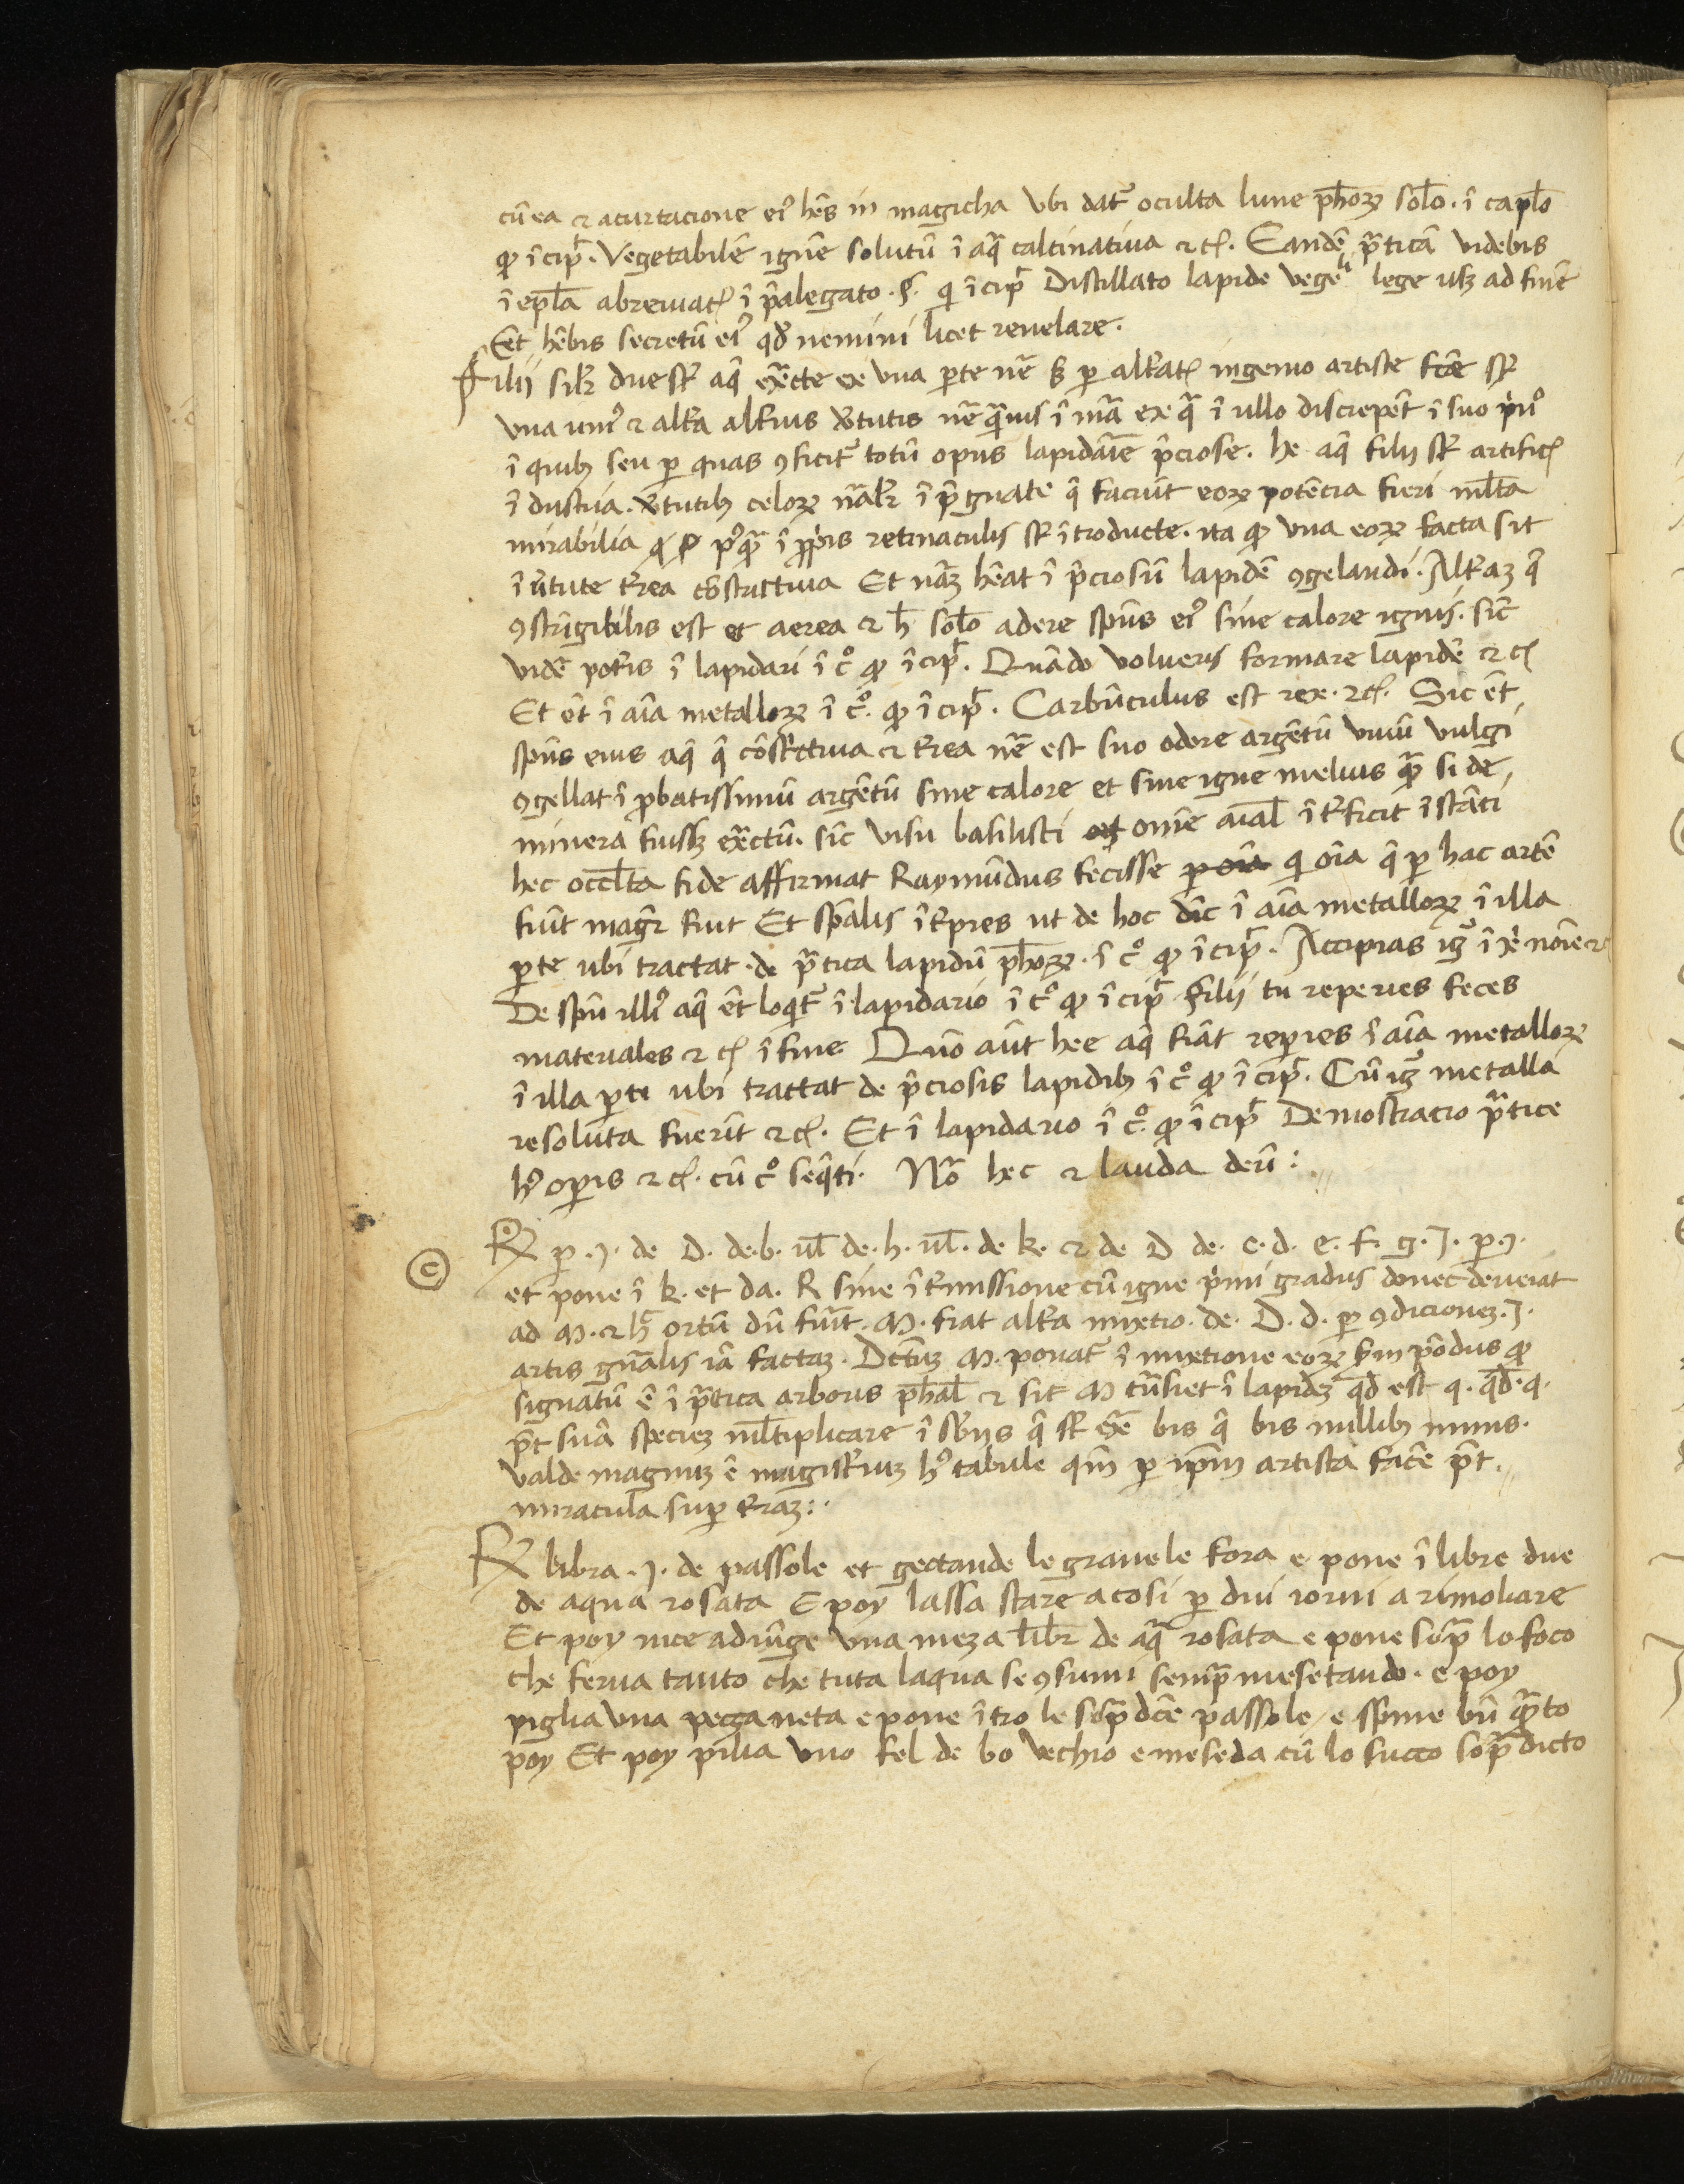 cū ea ⁊ acurtacione eiꝰ hēs in magicha Vbi dat᷑ oculta lune ph̄oꝝ sol̄o. ī capl̄o
ꝙ īcip̄. Vegetabilē ignē solutū ī aq̄ calcinatiua ⁊c̄. Eandē p̄ticā videbis
ī epl̄a abreuiat̄ ī p̄alegato .§. qi īcip̄ Distillato lapide vege li lege usqꝫ ad finē
Eet hēbis secretū eiꝰ qd̄ nemini licet reuelare.
Filii sil̄r due sꝉ aq̄ ex̄cte ex vna ꝑte nē sꝫ ꝑ alꝉat̄ ingenio artiste fcē sꝉ
vna uniꝰ ⁊ alꝉa alꝉius v̄tutis nē q̄uis ī mā ex q̄ ī ullo discrepēt ī suo p̄iꝰ
ī quibꝫ seu ꝑ quas ꝯficit᷑ totū opus lapidāīe p̄ciose. he aq̄ filii sꝉ artific̄
ī dustria. v̄tutibꝫ celoꝝ nāl̄r ī p̄gnate q̄ faciūt eoꝝ potēcia fieri ml̄ta
mirabilia ꝙ pꝰq̄ ī ꝓp̄is retinaculis sꝉ ītroducte. ita ꝙ vna eoꝝ facta sit
ī v̄tute ꝉrea cōstrictiua Et nāꝫ hēat ī p̄ciosū lapidē ꝯgelandi. Alꝉaꝫ q̄
ꝯstrīgibilis est et aerea ⁊ h̄ sol̄o adere spūs eiꝰ sine calore ignis. sic̄
vidē potꝉis ī lapidari ī c̊ ꝙ īcip̄. Quādo volueris formare lapidē ⁊c̄
Et ēt ī aīa metalloꝝ ī c̊. ꝙ īcip̄. Carbūculus est rex. ⁊c̄. Sic ēt
spūs eius aq̄ q̄ cōstꝉctiua ⁊ ꝉrea nē est suo odore argētū viuū vulgi
ꝯgellat ī ꝓbatissimū argētū sine calore et sine igne melius q̄ si de
minera fuisꝫ ex̄ctū. sic̄ visu basilisci omē aīal̄ īꝉficit īstāti
hec occl̄ta fide affirmat Raymūdus fecisse qi oīa q̄ ꝑ hac artē
fiūt magr̄ fuit Et spālis īꝉpres ut de hoc dīc ī aīa metalloꝝ ī illa
ꝑte ubi tractat de p̄tica lapidū ph̄oꝝ. ī c̊ ꝙ īcip̄. Accipias ig̊ ī xp̄i noīe ⁊c
De spū illiꝰ aq̄ ēt loqt᷑ ī lapidario ī c̊ ꝙ īcip̄ filii tu reperies feces
materiales ⁊c̄ ī fine. Quō aūt hee aq̄ fiāt reꝑies ī aīa metalloꝝ
ī illa ꝑte ubi tractat de p̄ciosis lapidibꝫ ī c̊ ꝙ īcip̄. Cū ig̊ metalla
resoluta fuerīt ⁊c̄. Et ī lapidario ī c̊. ꝙ īcip̄ Demostracio p̄tice
hꝰ oꝑis ⁊c̄. cū c̊ seq̄ti. Nō hec ⁊ lauda deū :
© ℞ ꝑ .J. de D. de. b. ul̄ de. h. ul̄. de k. ⁊ de D de. c. d. e. f. g. J. ꝑ. J.
et pone ī k. et da. R sine īꝉmissione cū igne p̄imi gradus donec deueīat
ad M. ⁊ h̄c ortū dū fuīt. M. fiat alꝉa mixtio. de. D. d. ꝑ ꝯdicioneꝫ. J.
artis gnālis iā factaꝫ. Dictuꝫ M. ponat᷑ ī mixtione eoꝝ sm̄ pōdus ꝙ
signatū ē ī p̄tica arboris ph̄al̄ ⁊ sit M tn̄siet ī lapidēꝫ qd̄ est q. qd̄. q.
p̄t suā specieꝫ ml̄tiplicare ī sv̄iis q̄ sꝉ exn̄ bis q̄ bis millibꝫ minus.
Valde magnuꝫ ē magistꝉiuꝫ hꝰ tabule qm̄ ꝑ ip̄m artista facē p̄t.
miracula suꝑ ꝉraꝫ :.
℞ libra .J. de passole et gectande le grauele fora e pone ī libre due
de aqua rosata E poy lassa stare acosi ꝑ dui iorni a rimoliare
Et poy nice adiūge vna meza lib̄r de aq̄ rosata e pone sop̄ lo foco
che ferua tanto che tuta laqua se ꝯsumi semp̄ mesetando. e poy
piglia vna pecca neta e pone ītro le sop̄ dc̄e passole / e spime bn̄ q̄to
poy Et poy pilia vno fel de bo vechio e meseda cū lo succo sop̄ dicto